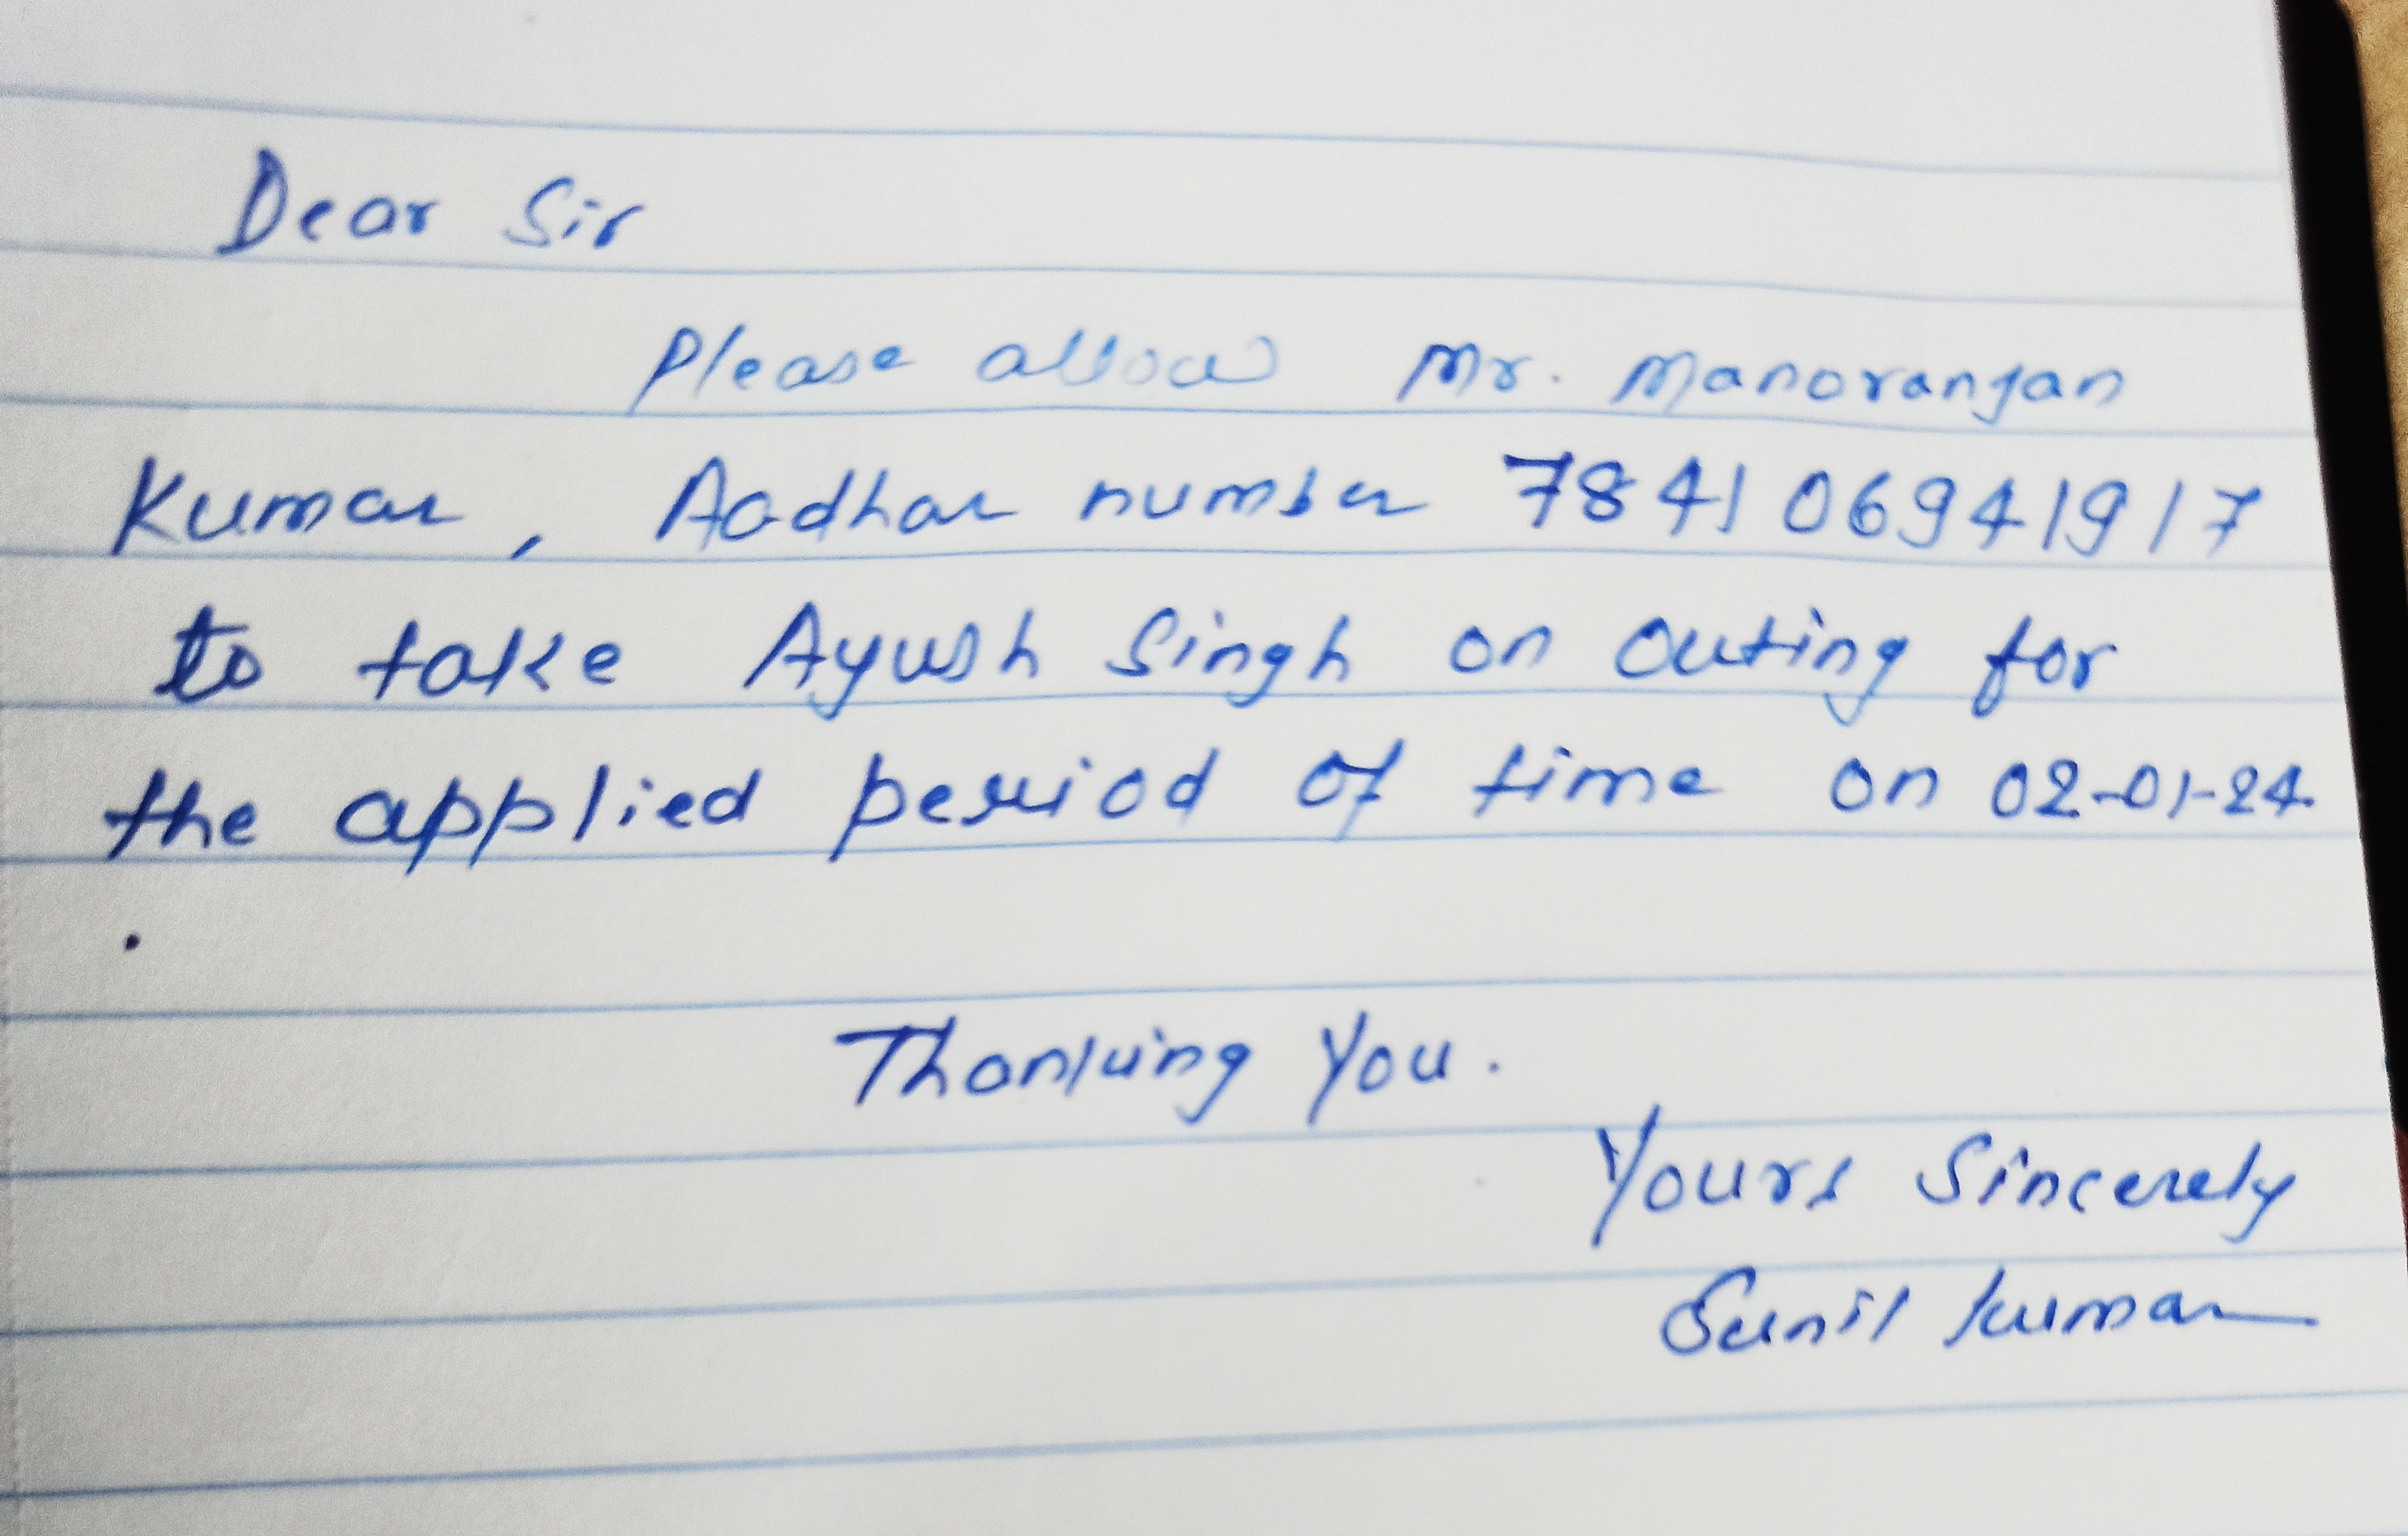 Dear Sir
Please allow Mr. Manoranjan
Kumar, Aadhar number 7841 06941917
to take Ayush Singh on outing for
the applied period of time on 02-01-24.
.
Thanking You.
Yours Sincerely
Sunil Kumar